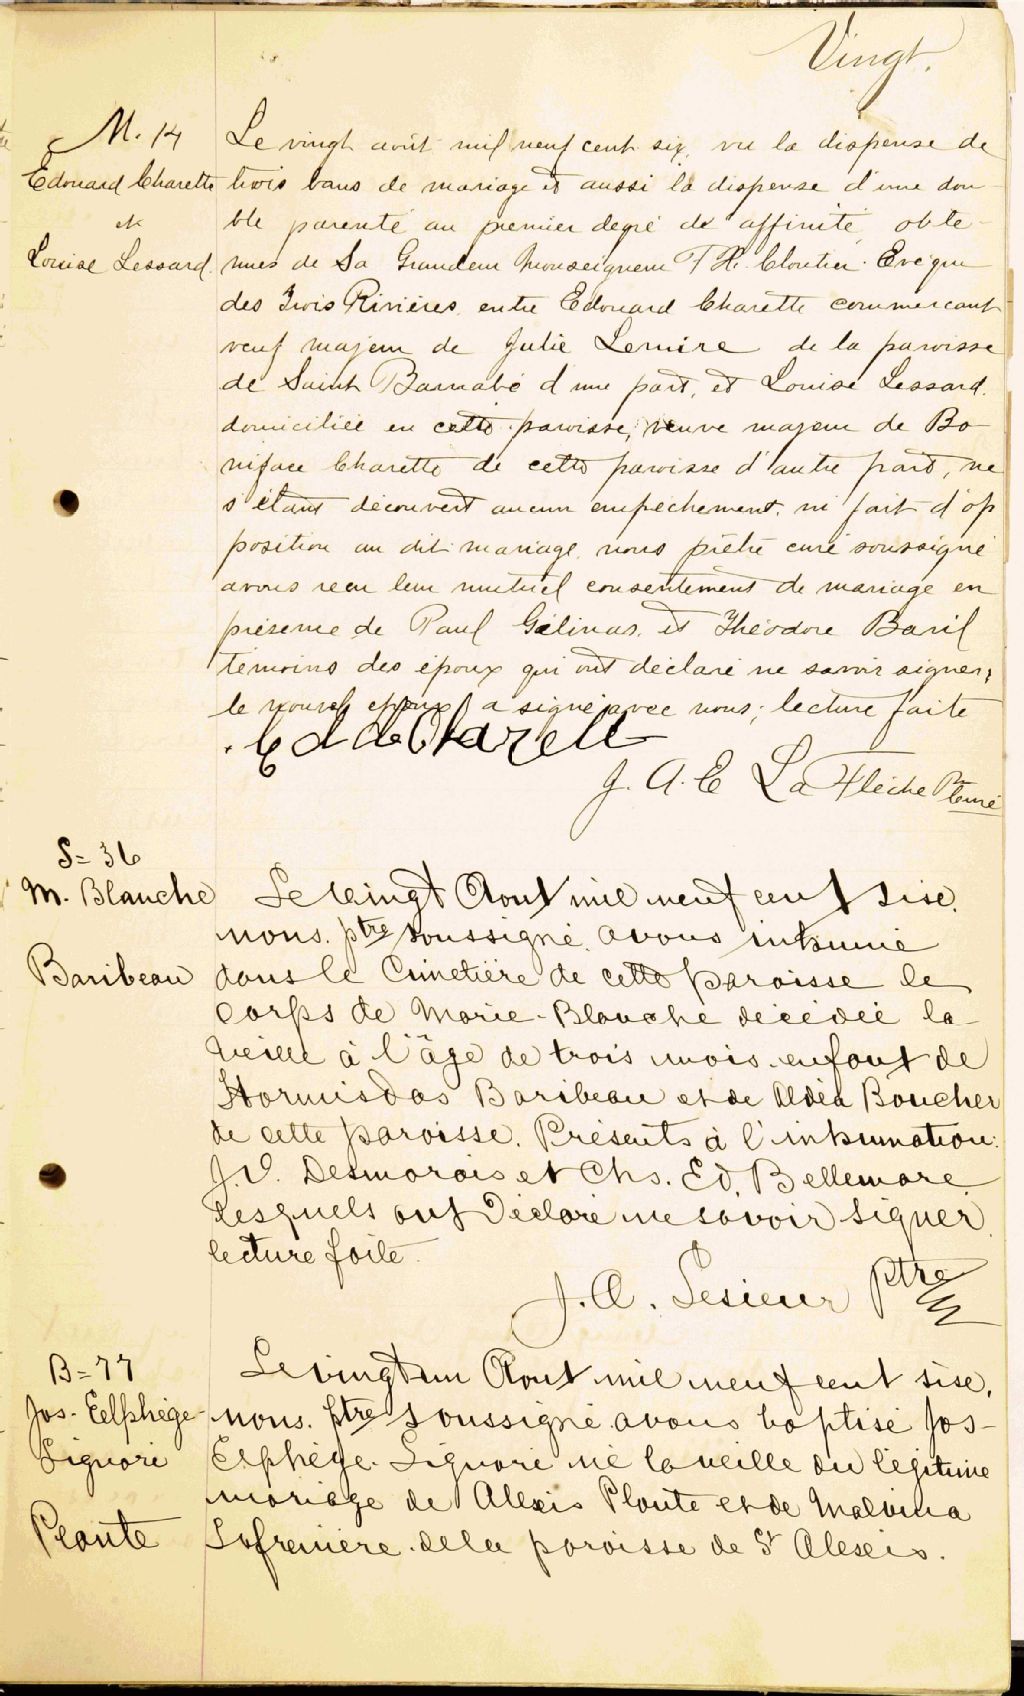 Vingt.
M. 14
Edouard Charette
et
Louise Lessard
Le vingt août mil neuf cent six, vu la dispense de
trois bans de mariage et aussi la dispense d'une dou-
ble parenté au premier degré de affinité, obte-
nues de Sa Grandeur Monseigneur F X. Cloutier. Evêque
des Trois Rivières, entre Edouard Charette commercant
veuf majeur de Julie Lemire de la paroisse
de Saint Barnabé d'une part, et Louise Lessard.
domiciliée en cette paroisse, veuve majeur de Bo-
niface Charette de cette paroisse d'autre part, ne
s'étant découvert aucun empêchement, ni fait d'op
position au dit mariage, nous prêtre curé soussigné
avons recu leur mutuel consentement de mariage en
présence de Paul Gélinas, et Théodore Baril
témoins des époux qui ont déclaré ne savoir signer;
le nouvel époux a signé avec nous; lecture faite
Ed de Charett
J. A. E LaFlèche Ptre curé
S= 36
M. Blanche
Baribeau
Le Vingt Aout mil neuf cent sise.
nous. ptre soussigné. avons inhumé
dans le Cimetière de cette paroisse le
corps de Marie-Blanche décédée la
veille à l'âge de trois mois enfant de
Hormisdas Baribeau et de Aldéa Boucher
de cette paroisse. Présents à l'inhumation:
J. V. Desmarais et Chs. Ed. Bellemare
lesquels ont Déclaré ne savoir signer.
lecture faite.
J. A. Lesieur Ptre
B=77
Jos- Eelphège-
Liguori
Plante
Le vingt un Aout mil neuf cent sise,
nous. Ptre soussigné avons baptisé Jos-
Elphège. Liguori né la veille du légitime
mariage de Alexis Plante et de Malvina
Lafrenière. de la paroisse de St Alexis.